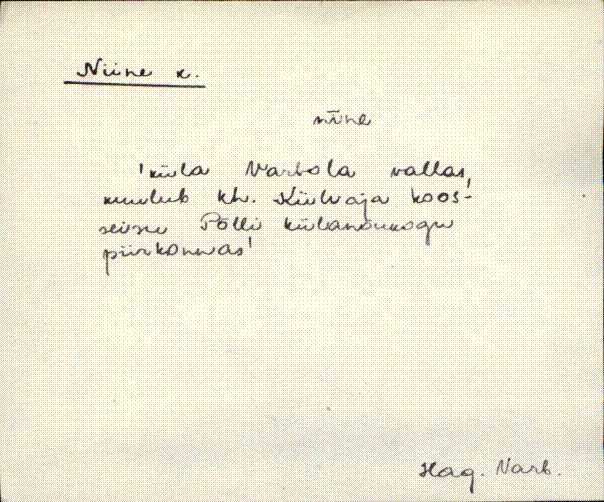 Niine k.
nīne
'küla Varbola vallas,
kuulub kh. Külvaja koos-
seisu Põlli külanõukogu
piirkonnas'
Hag. Varb.